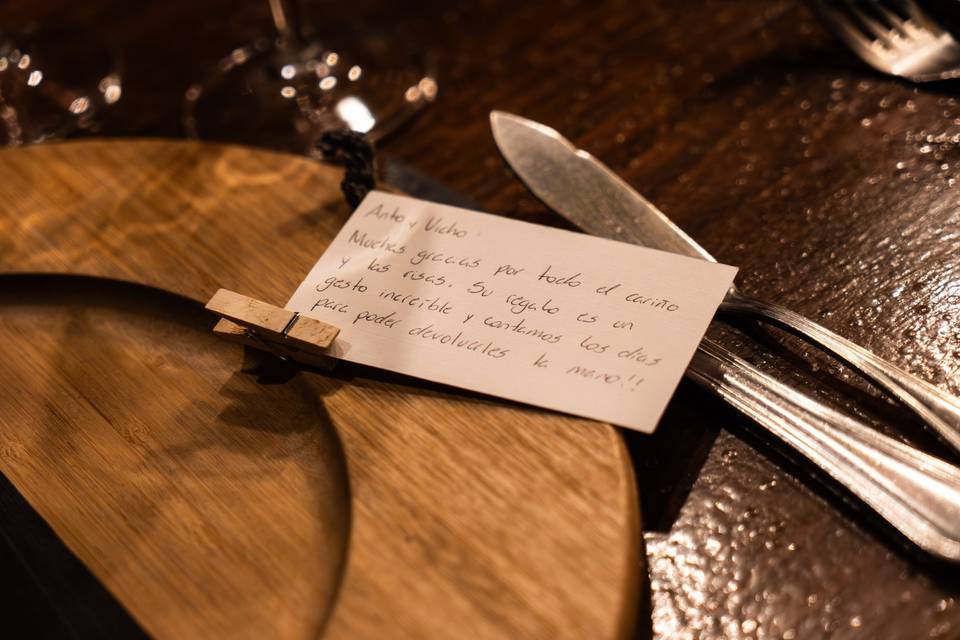 Anto y Vicho:
Muchas gracias por todo el cariño
y las risas. Su regalo es un
gesto increíble y contamos los días
para poder devolverles la mano!!